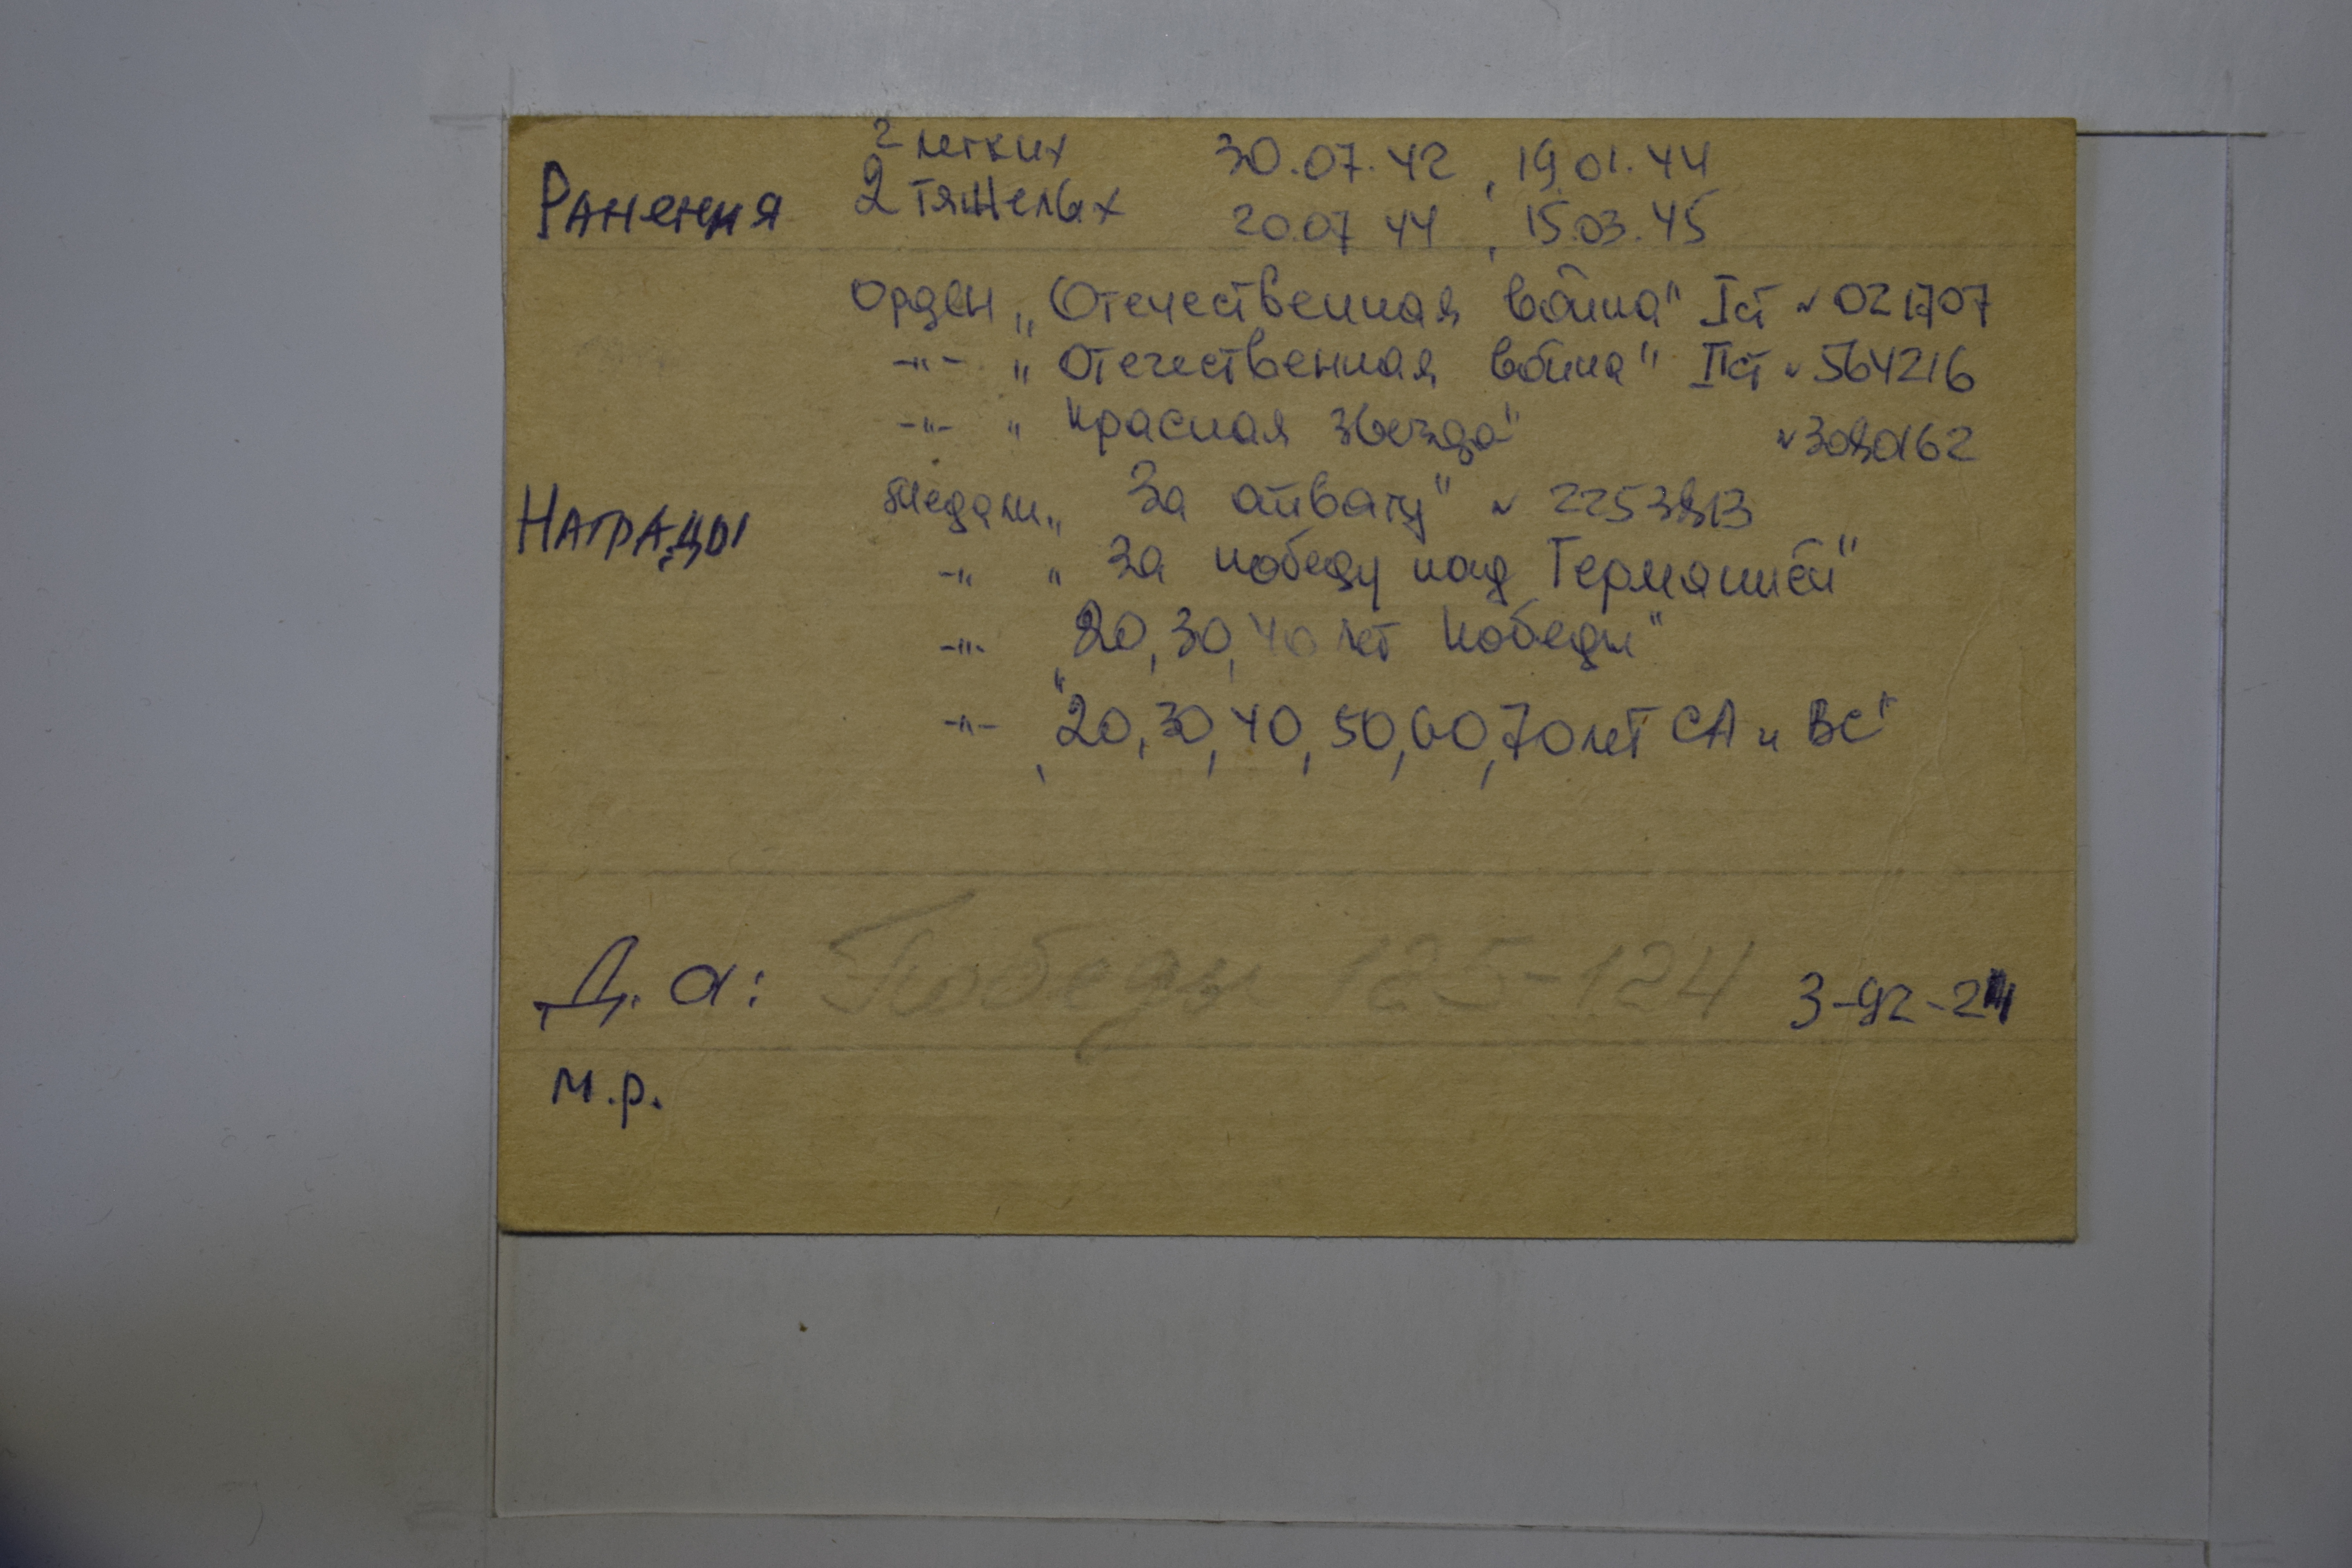 2 легких 30.07.42, 19.01.44
Ранения 2 тяжелых 20.07 44, 15.03.45
Орден „Отечественная война" I ст № 021707
-"- " Отечественная война" II ст № 564216
-"- " Красная звезда" № 3080162
Награды медали „ За отвагу" № 2253813
-" " За победу над Германией"
-"- „20, 30, 40 лет Победы"
-"- „20, 30, 40, 50, 60, 70 лет СА и ВС"
Д. а: Победы 125-124 3-92-24
м.р.